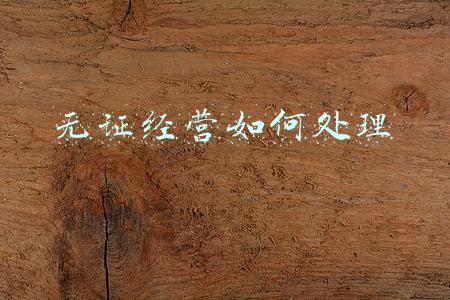 无证经营如何处理